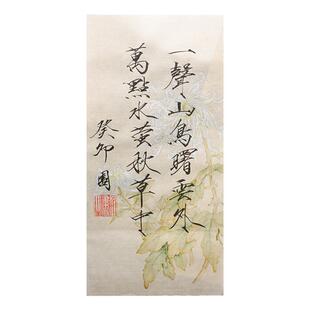 一聲山鳥曙雲外
萬點水螢秋草中
癸卯國